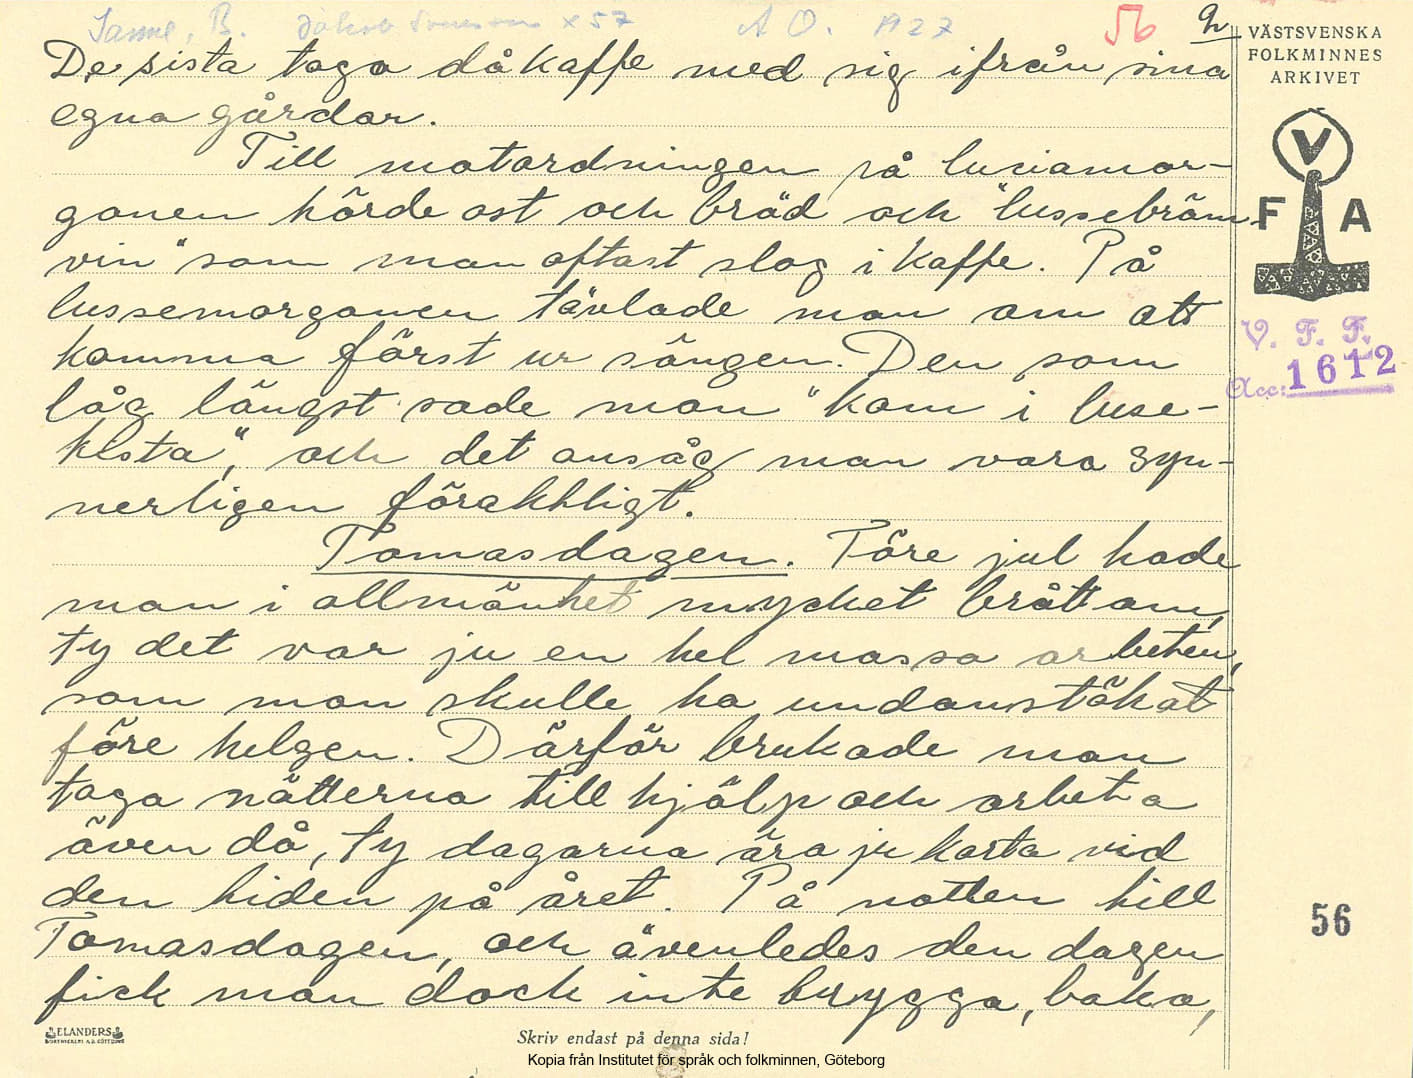 Sanne, B. Jakob Jonsson x 57 A O. 1927 56 2
VÄSTSVENSKA
FOLKMINNES
ARKIVET
V
F A
V. F. F.
Acc: 1612
De sista taga då kaffe med sig ifrån sina
egna gårdar.
Till matordningen på luciamor-
gonen hörde ost och bröd och "lussebränn-
vin" som man oftast slog i kaffe. På
lussemorgonen tävlade man om att
komma först ur sängen. Den som
låg längst sade man "kom i luse-
kista", och det ansåg man vara syn-
nerligen föraktligt.
Tomasdagen. Före jul hade
man i allmänhet mycket bråttom,
ty det var ju en hel massa arbeten,
som man skulle ha undanstökat
före helgen. Därför brukade man
taga nätterna till hjälp och arbeta
även då, ty dagarna äro ju korta vid
den tiden på året. På natten till
Tomasdagen, och ävenledes den dagen
fick man dock inte brygga, baka,
56
ELANDERS
Skriv endast på denna sida!
Kopia från Institutet för språk och folkminnen, Göteborg